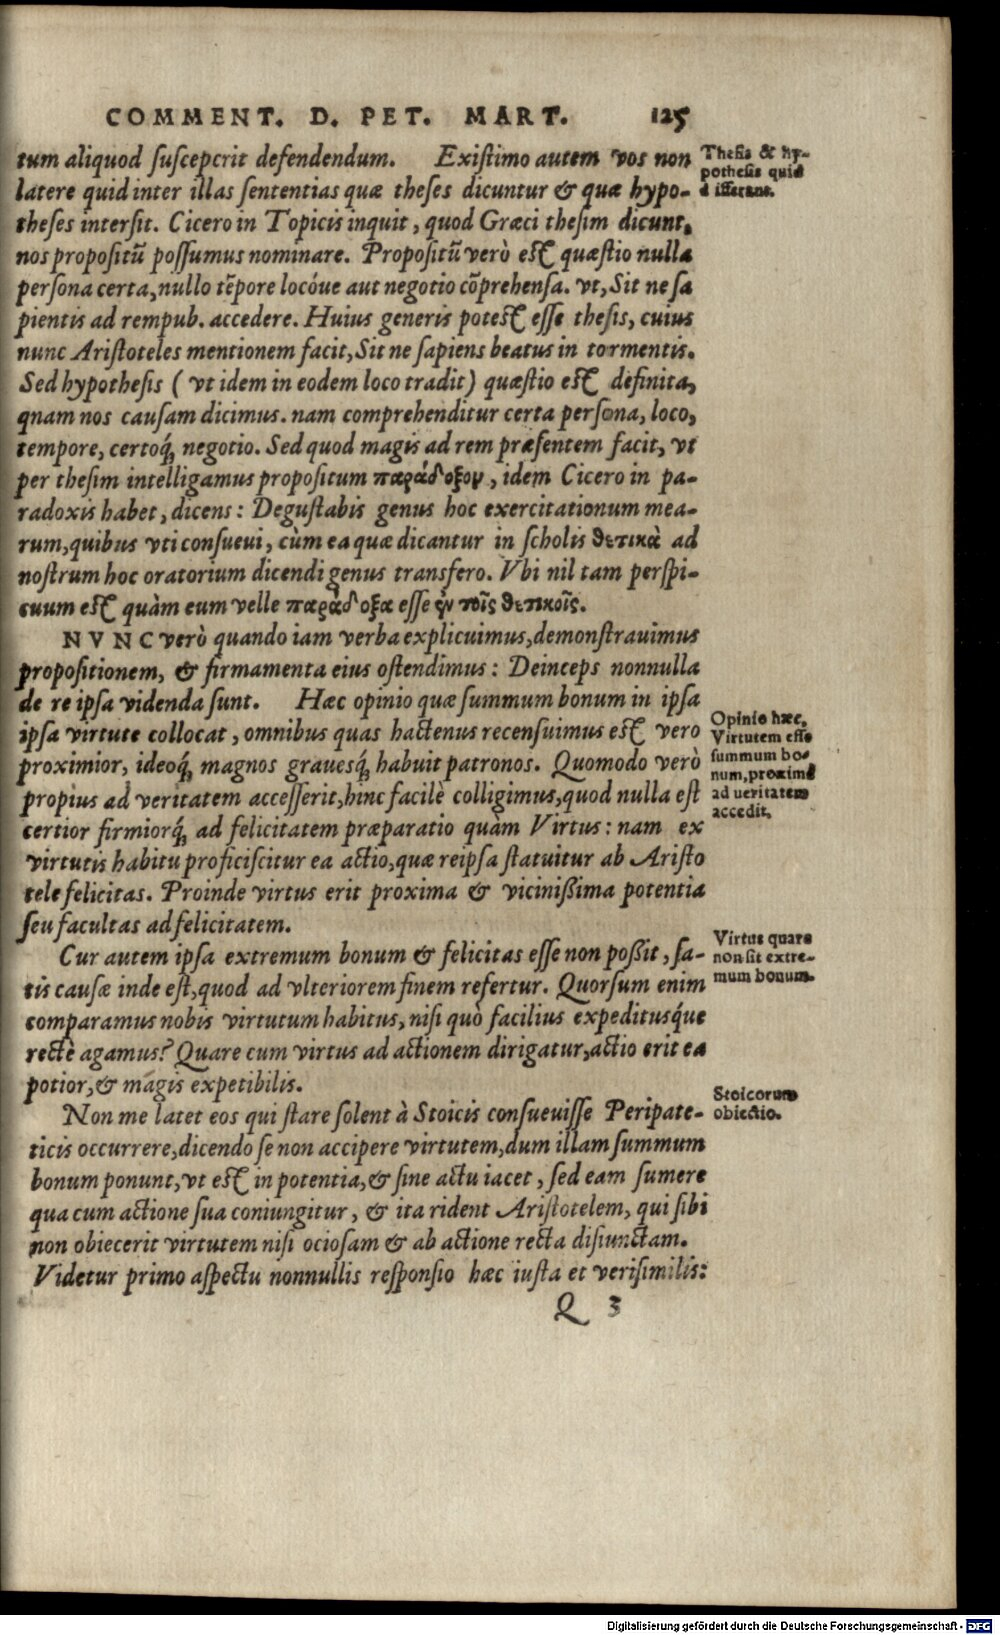 COMMENT. D. PET. MART. 125
tum aliquod ſuſceperit defendendum. Exiſtimo autem vos non
latere quid inter illas ſententias quæ theſes dicuntur & quæ hypo-
theſes interſit. Cicero in Topicis inquit, quod Græci theſim dicunt,
nos propoſitũ poſſumus nominare. Propoſitũ verò eſt quæſtio nulla
perſona certa, nullo tẽpore locóve aut negotio cõprehenſa. vt, Sit ne ſa
pientis ad rempub. accedere. Huius generis poteſt eſſe theſis, cuius
nunc Ariſtoteles mentionem facit, Sit ne ſapiens beatus in tormentis.
Sed hypotheſis ( vt idem in eodem loco tradit) quæſtio eſt definita,
qnam nos cauſam dicimus. nam comprehenditur certa perſona, loco,
tempore, certoq́; negotio. Sed quod magis ad rem præſentem facit, vt
per theſim intelligamus propoſitum παράδοξον, idem Cicero in pa-
radoxis habet, dicens: Deguſtabis genus hoc exercitationum mea-
rum, quibus vti conſueui, cùm ea quæ dicantur in ſcholis θετικὰ ad
noſtrum hoc oratorium dicendi genus transfero. Vbi nil tam perſpi-
cuum eſt quàm eum velle παράδοξα eſſe ἐν τοῖς θετικοῖς.
NVNC verò quando iam verba explicuimus, demonſtrauimus
propoſitionem, & firmamenta eius oſtendimus: Deinceps nonnulla
de re ipſa videnda ſunt. Hæc opinio quæ ſummum bonum in ipſa
ipſa virtute collocat, omnibus quas hactenus recenſuimus eſt vero
proximior, ideoq́; magnos graueſq́; habuit patronos. Quomodo verò
propiùs ad veritatem acceſſerit, hinc facilè colligimus, quod nulla eſt
certior firmiorq́; ad felicitatem præparatio quàm Virtus: nam ex
virtutis habitu proficiſcitur ea actio, quæ reipſa ſtatuitur ab Ariſto
tele felicitas. Proinde virtus erit proxima & vicinißima potentia
ſeu facultas ad felicitatem.
Cur autem ipſa extremum bonum & felicitas eſſe non poßit, ſa-
tis cauſæ inde eſt, quod ad vlteriorem finem refertur. Quorſum enim
comparamus nobis virtutum habitus, niſi quò facilius expeditusq́ue
rectè agamus? Quare cum virtus ad actionem dirigatur, actio erit ea
potior, & magis expetibilis.
Non me latet eos qui ſtare ſolent à Stoicis conſueuiſſe Peripate-
ticis occurrere, dicendo ſe non accipere virtutem, dum illam ſummum
bonum ponunt, vt eſt in potentia, & ſine actu iacet, ſed eam ſumere
qua cum actione ſua coniungitur, & ita rident Ariſtotelem, qui ſibi
non obiecerit virtutem niſi ocioſam & ab actione recta diſiunctam.
Videtur primo aſpectu nonnullis reſponſio hæc iuſta et veriſimilis:
Q 3
Theſis & hy-
potheſis quid
differant.
Opinio hæc,
Virtutem eſſe
ſummum bo-
num, proximè
ad ueritatem
accedit.
Virtus quare
non ſit extre-
mum bonum.
Stoicorum
obiectio.
Digitalisierung gefördert durch die Deutsche Forschungsgemeinschaft - DFG